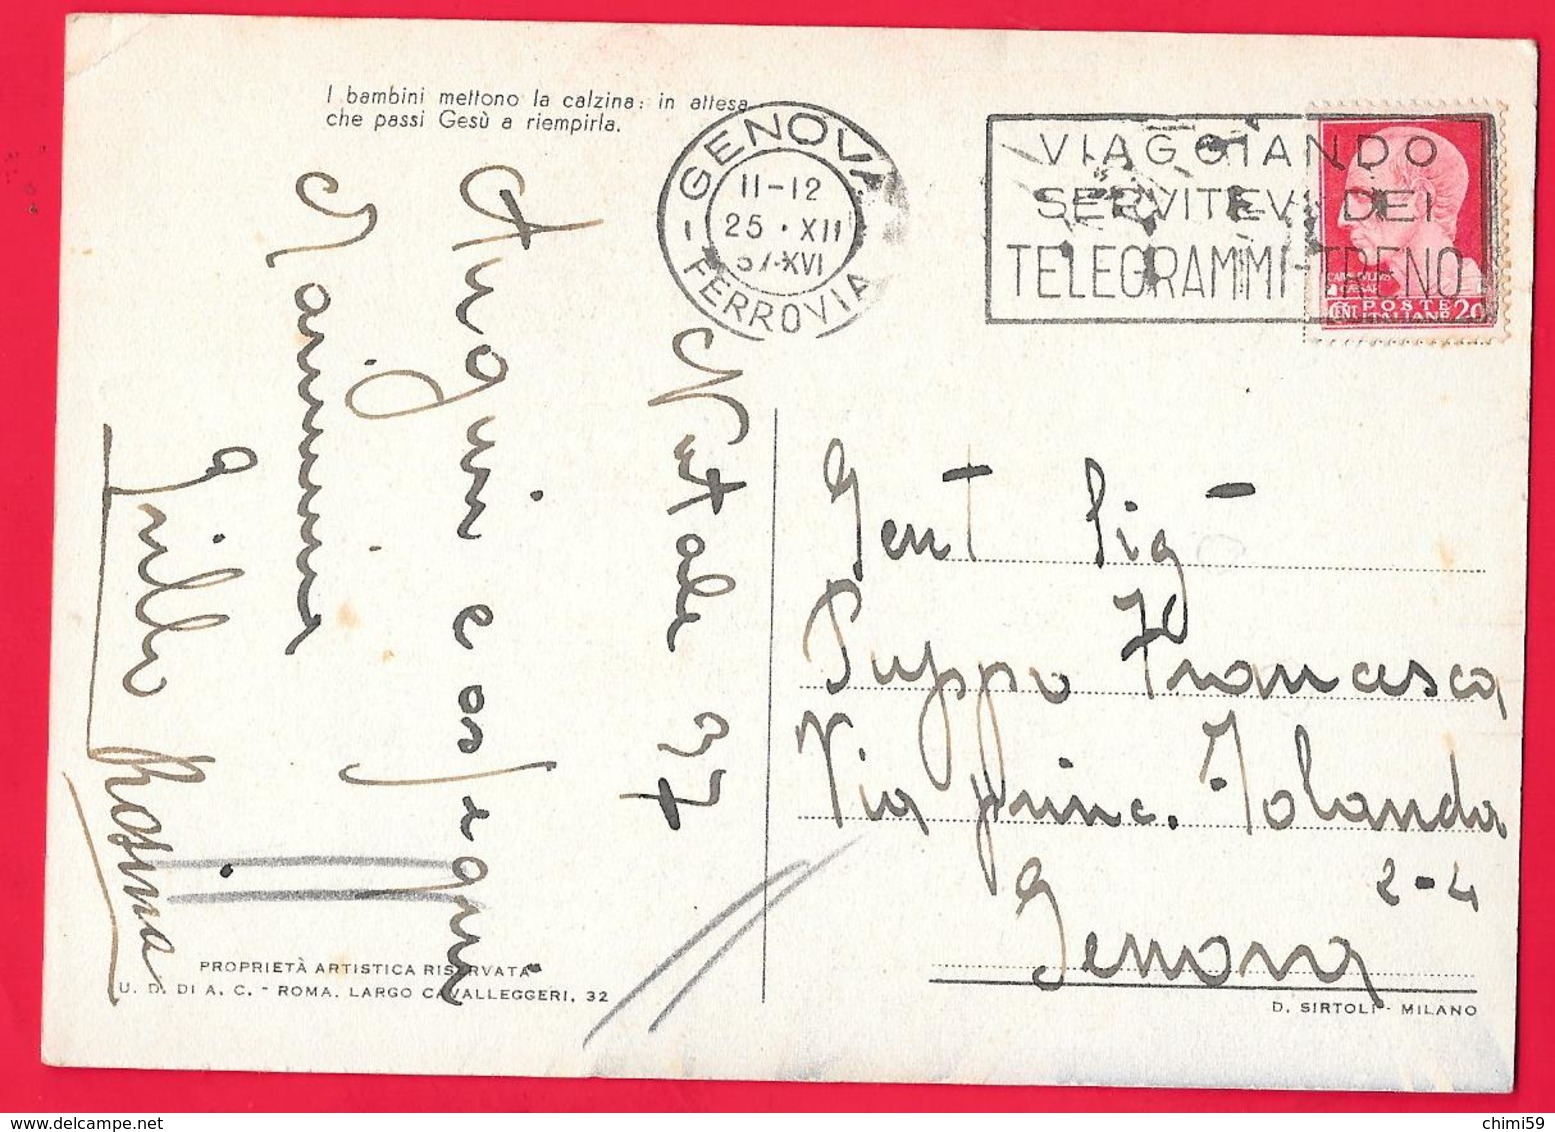 I bambini mettono la calzina: in attesa
che passi Gesù a riempirla.
GENOVA
11-12
25 · XII
37·XVI
FERROVIA
VIAGGIANDO
SERVITEVI DEI
TELEGRAMMI-TRENO
POSTE
CENT ITALIANE 20
Natale 937
Auguri e ossequi
Mammina
Rosina
Gent Sig
Puppo Francesca
Via Princ. Jolanda
2-4
Genova
PROPRIETÀ ARTISTICA RISERVATA
U. D. DI A. C. - ROMA. LARGO CAVALLEGGERI, 32
D. SIRTOLI - MILANO
chimi59